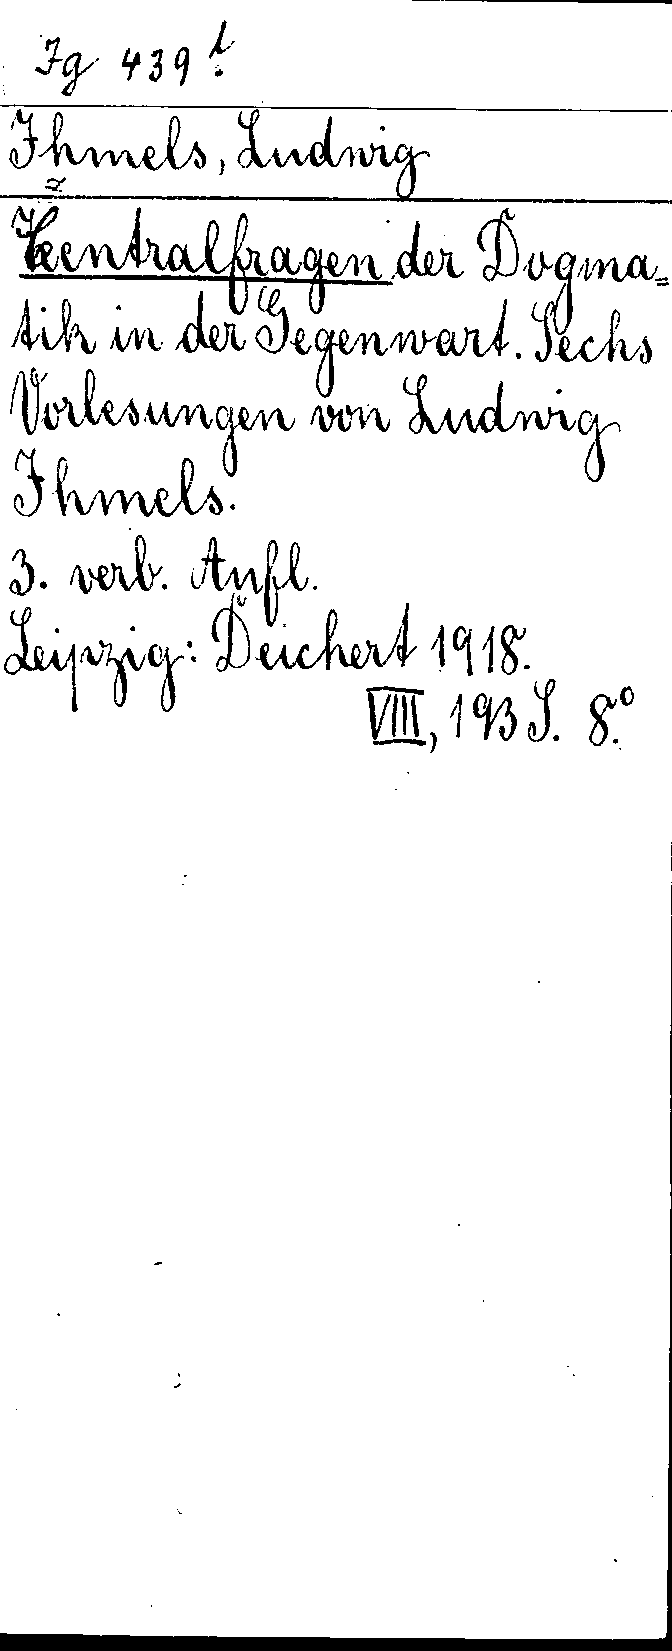 Ig 439 t.
Ihmels, Ludwig
Zentralfragen der Dogma=
tik in der Gegenwart. Sechs
Vorlesungen von Ludwig
Ihmels.
3. verb. Aufl.
Leipzig: Deichert 1918.
VIII, 193 S. 8.°